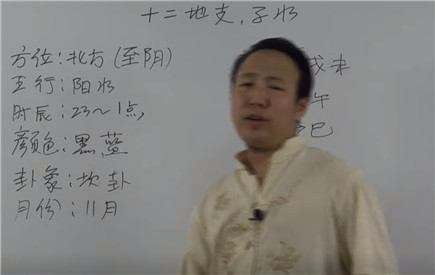 十二地支，子水
方位：北方（至阴）
五行：阳水
时辰：23～1点，
颜色：黑 蓝
卦象：坎卦
月份：11月
戌未
午
巳